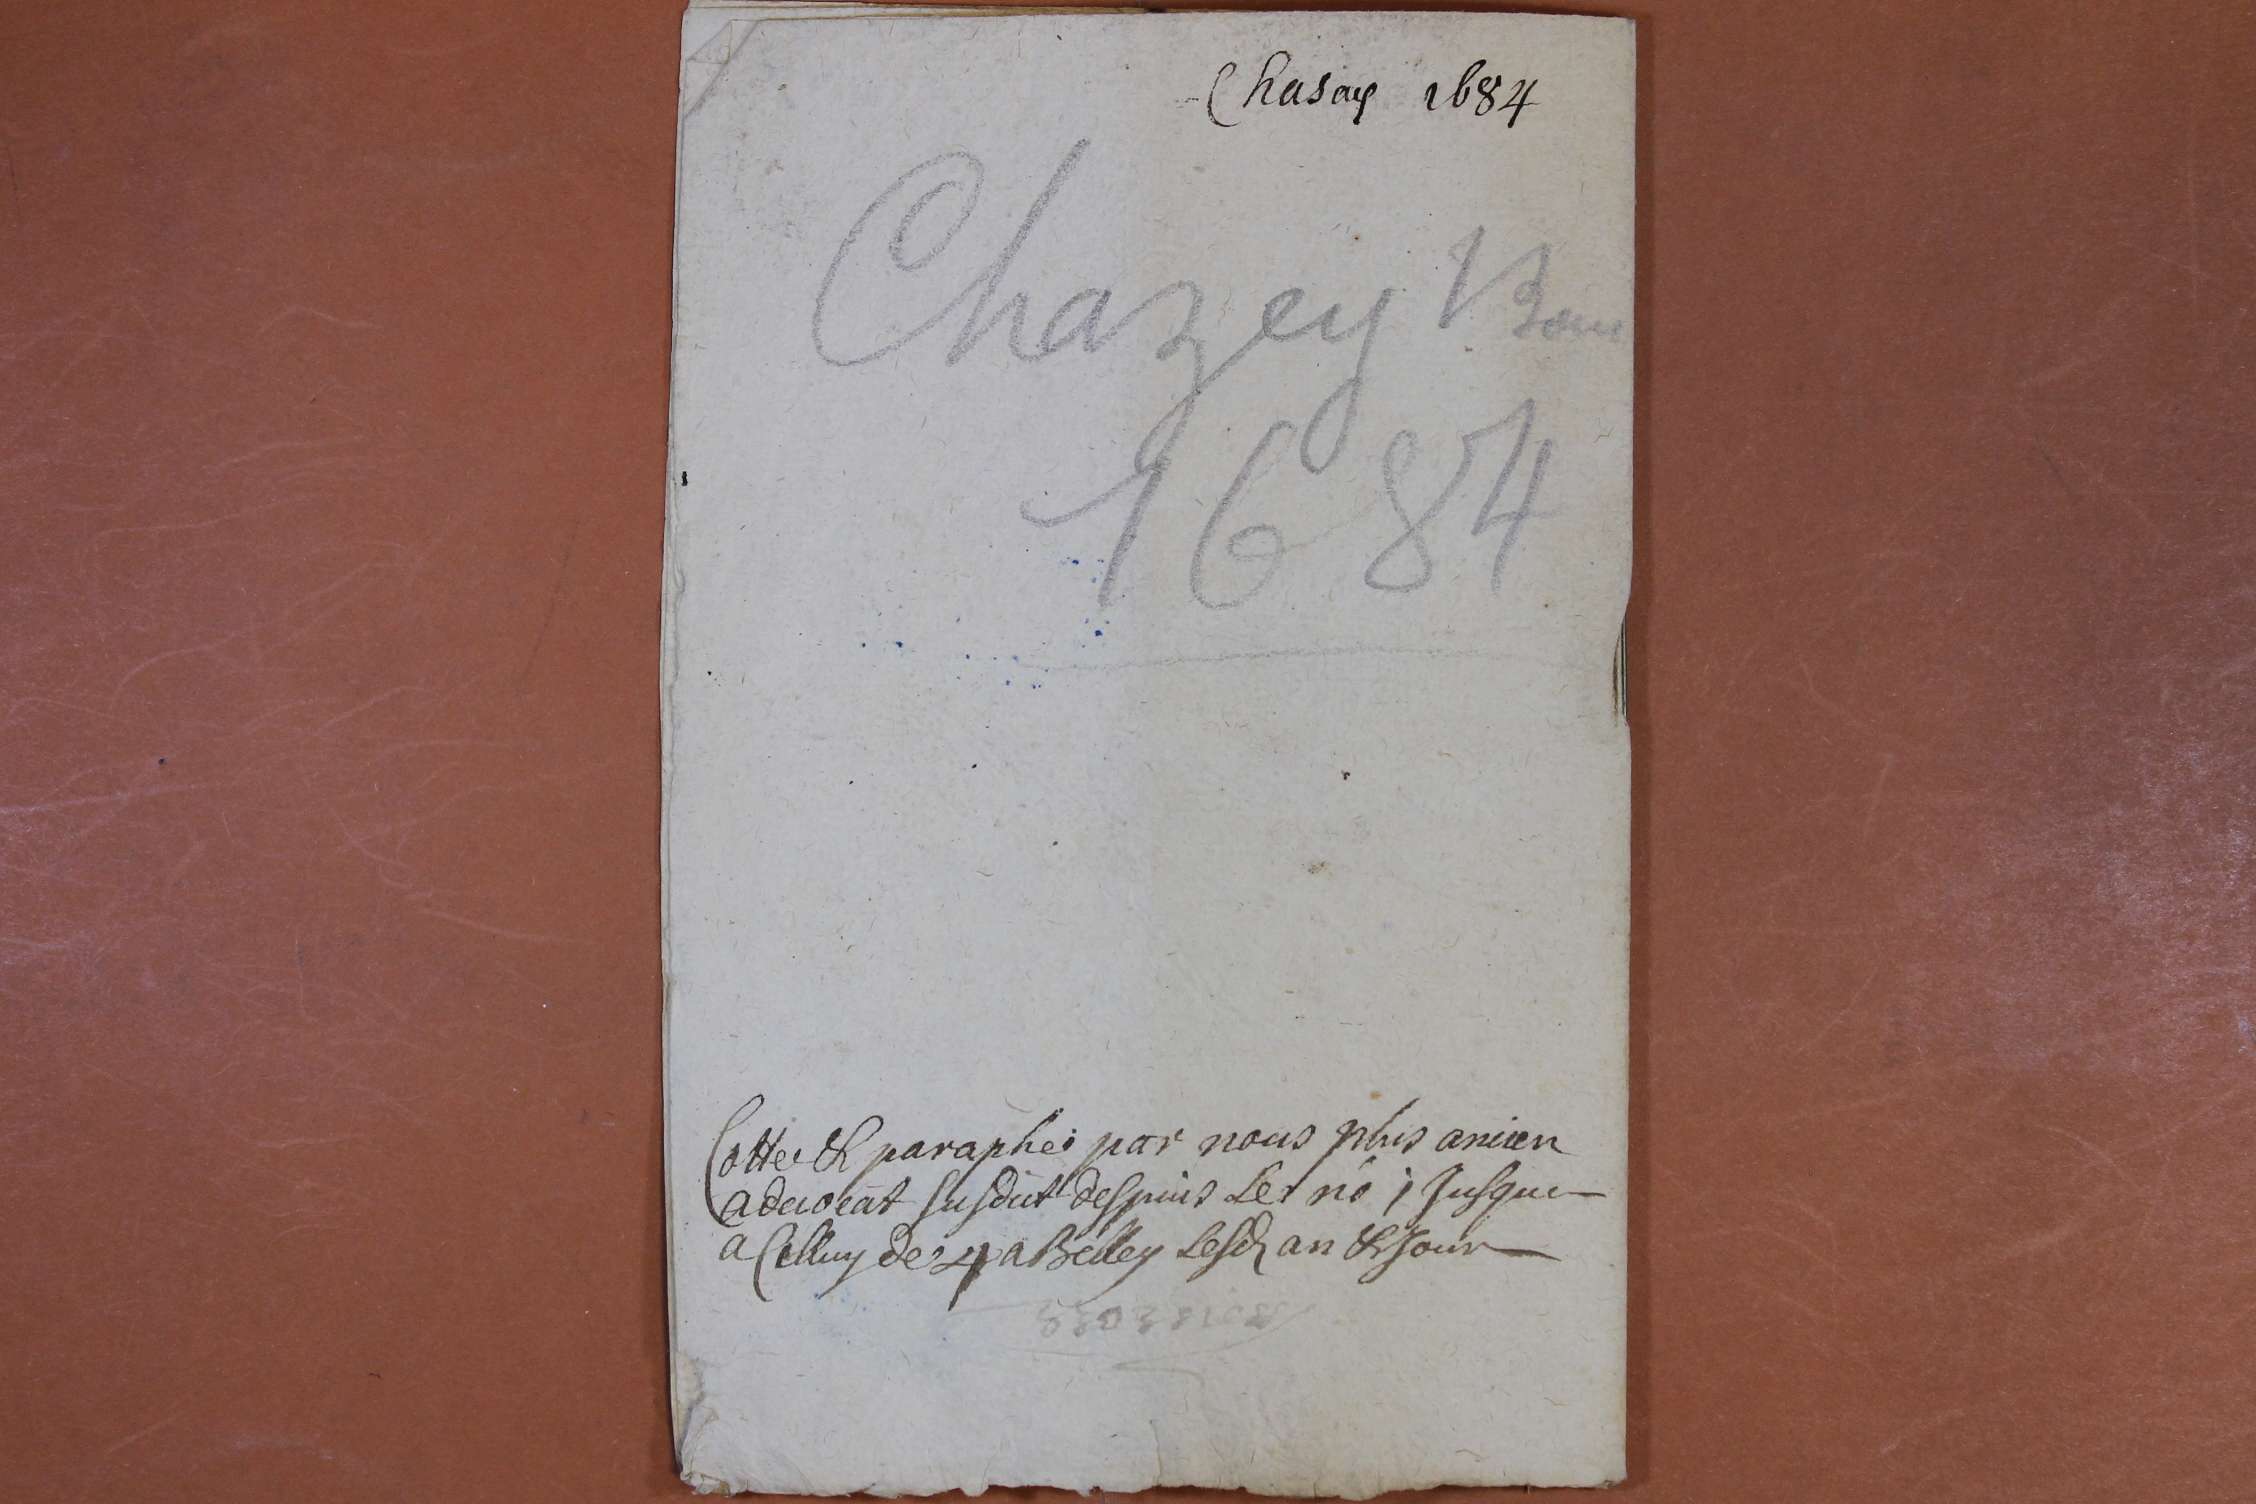 Chasay 1684
Chazey Bons
1684
Cotté & paraphé par nous plus antien
advocat susdit despuis le no 1 jusque
a celluy de 4 a Belley lesd an & jour